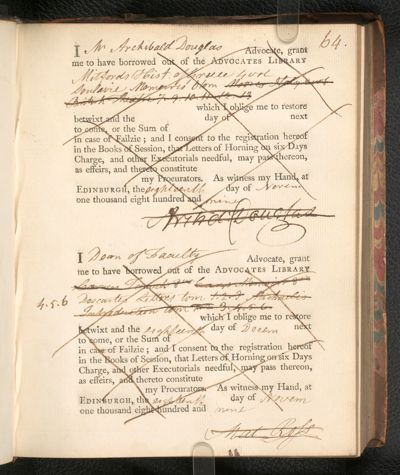 64.
I Mr Archibald Douglas Advocate, grant
me to have borrowed out of the ADVOCATES LIBRARY
Mitfords Hist. of Greece
which I oblige me to restore
betwixt and the day of next
to come, or the Sum of
in case of Failzie; and I consent to the registration hereof
in the Books of Session, that Letters of Horning on six Days
Charge, and other Executorials needful, may pass thereon,
as effeirs, and thereto constitute
my Procurators. As witness my Hand, at
EDINBURGH, the eighteenth day of Novem
one thousand eight hundred and nine
Archd Douglas
I Dean of Faculty Advocate, grant
me to have borrowed out of the ADVOCATES LIBRARY
4.5.6 Descartes Letters tom 1.2.3
Introduction tom
which I oblige me to restore
betwixt and the eighteenth day of Decem next
to come, or the Sum of
in case of Failzie; and I consent to the registration hereof
in the Books of Session, that Letters of Horning on six Days
Charge, and other Executorials needful, may pass thereon,
as effeirs, and thereto constitute
my Procurators. As witness my Hand, at
EDINBURGH, the eighteenth day of Novem
one thousand eight hundred and nine
Mat. Ross